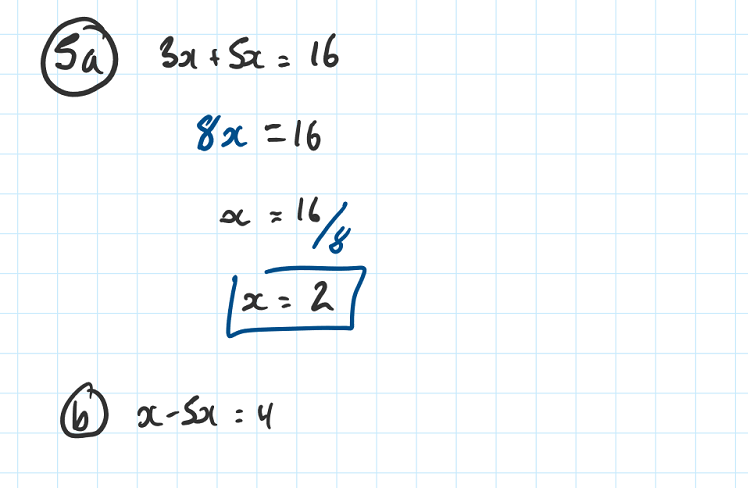 5a 3x + 5x = 16
8x = 16
x = 16/8
x = 2
b x - 5x = 4